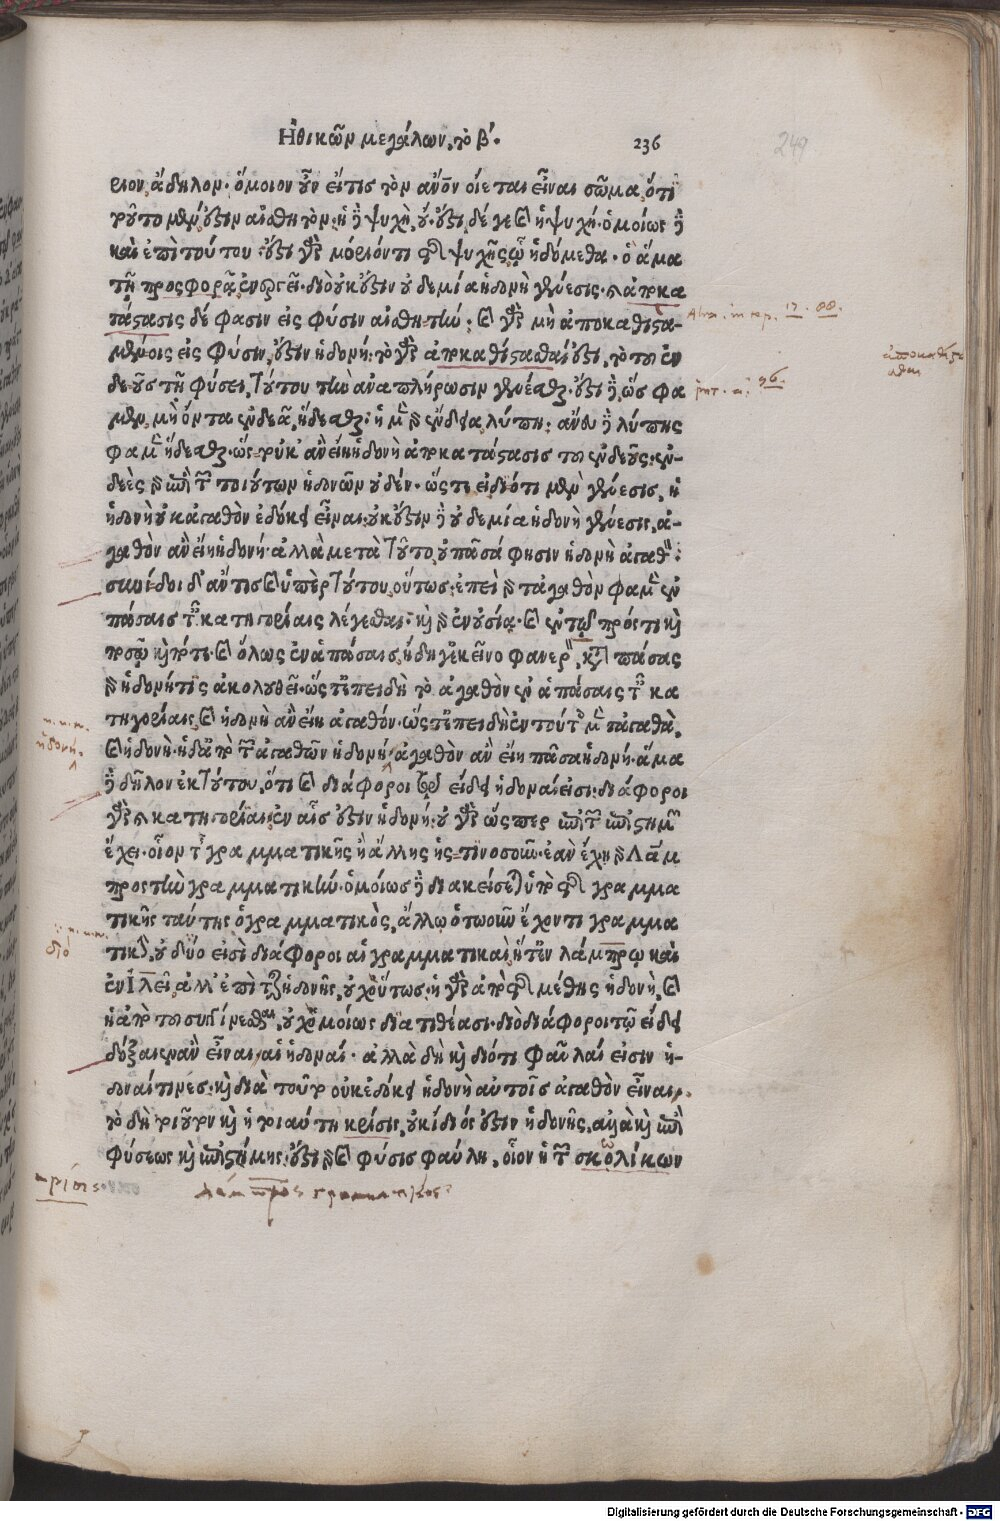 Ἠθικῶν μεγάλων, τὸ β΄. 236
249
ριον, ἄδηλον. ὅμοιον οὖν εἴ τις τὸν ἄνον οἴεται εἶναι σῶμα, ὅτι
τοῦτο μέν ἐστιν αἰσθητόν. ἡ δὲ ψυχὴ, οὔ. ἔστι δέ γε καὶ ἡ ψυχή. ὁμοίως δὲ
καὶ ἐπὶ τούτου. ἔστι γὰρ μόριόν τι τῆς ψυχῆς ᾧ ἡδόμεθα. ὃ ἅμα
τῇ προσφορᾷ ἐνεργεῖ. διὸ οὐκ ἔστιν οὐδεμία ἡδονὴ γένεσις. ἀποκα
τάστασις δέ φασιν εἰς φύσιν αἰσθητήν. καὶ γὰρ μὴ ἀποκαθιστα-
μένοις εἰς φύσιν, ἔστιν ἡδονή. τὸ γὰρ ἀποκαθίστασθαί ἐστι, τὸ τοῦ ἐν
δεοῦς τῇ φύσει, τούτου τὴν ἀναπλήρωσιν γενέσθαι. ἔστι δὲ, ὥς φα
μεν, μὴ ὄντα ἐνδεᾶ, ἥδεσθαι. ἡ μὲν γὰρ ἔνδεια, λύπη. ἄνευ δὲ λύπης
φαμὲν ἥδεσθαι. ὥστε οὐκ ἂν εἴη ἡ ἡδονὴ ἀποκατάστασις τοῦ ἐνδεοῦς. ἐν-
δεὲς γὰρ ἐπὶ τῶν τοιούτων ἡδονῶν οὐδέν. ὥστε εἰ διότι μὲν γένεσις, ἡ
ἡδονὴ οὐκ ἀγαθὸν ἐδόκει εἶναι, οὐκ ἔστιν δὲ οὐδεμία ἡδονὴ γένεσις, ἀ-
γαθὸν ἂν εἴη ἡ ἡδονή. ἀλλὰ μετὰ τοῦτο, οὐ πᾶσά φησιν ἡδονὴ ἀγαθόν.
συνίδοι δ' ἄν τις καὶ ὑπὲρ τούτου, οὕτως. ἐπεὶ γὰρ τἀγαθὸν φαμὲν ἐν
πάσαις ταῖς κατηγορίαις λέγεσθαι. καὶ γὰρ ἐν οὐσίᾳ. καὶ ἐν τῷ πρός τι καὶ
ποσῷ καὶ πότε. καὶ ὅλως ἐν ἁπάσαις, ἤδη γ' ἐκεῖνο φανερόν. κατὰ πάσας
γὰρ ἡδονή τις ἀκολουθεῖ. ὥστε ἐπειδὴ τὸ ἀγαθὸν ἐν ἁπάσαις ταῖς κα
τηγορίαις, καὶ ἡδονὴ ἂν εἴη ἀγαθόν. ὥστε ἐπειδὴ ἐν τούτοις μὲν τἀγαθὰ,
καὶ ἡδονή. ἡ δὲ ἀπὸ τῶν ἀγαθῶν ἡδονὴ, ἀγαθὸν ἂν εἴη πᾶσα ἡδονή. ἅμα
δὲ δῆλον ἐκ τούτου, ὅτι καὶ διάφοροι τῷ εἴδει ἡδοναί εἰσι. διάφοροι
γὰρ αἱ κατηγορίαι, ἐν αἷς ἐστιν ἡδονή. οὐ γὰρ ὥσπερ ἐπὶ τῶν ἐπιστημῶν
ἔχει. οἷον τῆς γραμματικῆς ἢ ἄλλης ἧς τινοσοῦν. ἐὰν ἔχῃ γὰρ Λάμ
προς τὴν γραμματικήν. ὁμοίως δὲ διακείσεται ὑπὸ τῆς γραμμα
τικῆς ταύτης ὁ γραμματικὸς, ἄλλῳ ὁτωοῦν ἔχοντι γραμμα
τικήν, οὐ δύο εἰσὶ διάφοροι αἱ γραμματικαὶ, ἥ τε ἐν λάμπρῳ καὶ
ἐν Ἰλεῖ. ἀλλ' ἐπὶ τῆς ἡδονῆς, οὐχ οὕτως. ἡ γὰρ ἀπὸ τῆς μέθης ἡδονὴ, καὶ
ἡ ἀπὸ τοῦ συγγίνεσθαι, οὐχ ὁμοίως διατιθέασι. διὸ διάφοροι τῷ εἴδει
δόξαιεν ἂν εἶναι, αἱ ἡδοναί. ἀλλὰ δὴ καὶ διότι φαῦλαί εἰσιν ἡ-
δοναί τινες. καὶ διὰ τοῦτο οὐκ ἐδόκει ἡδονὴ αὐτοῖς ἀγαθὸν εἶναι.
τὸ δὴ τοιοῦτον καὶ ἡ τοιαύτη κρίσις, οὐκ ἴδιός ἐστιν ἡδονῆς, ἀλλὰ καὶ ἐπὶ
φύσεως καὶ ἐπιστήμης. ἔστι γὰρ καὶ φύσις φαύλη, οἷον ἡ τῶν σκωλίκων
ἀποκαθίστασθαι
ἡδονή.
διό
κρίσις.
λάμπρος γραμματικός.
Digitalisierung gefördert durch die Deutsche Forschungsgemeinschaft - DFG